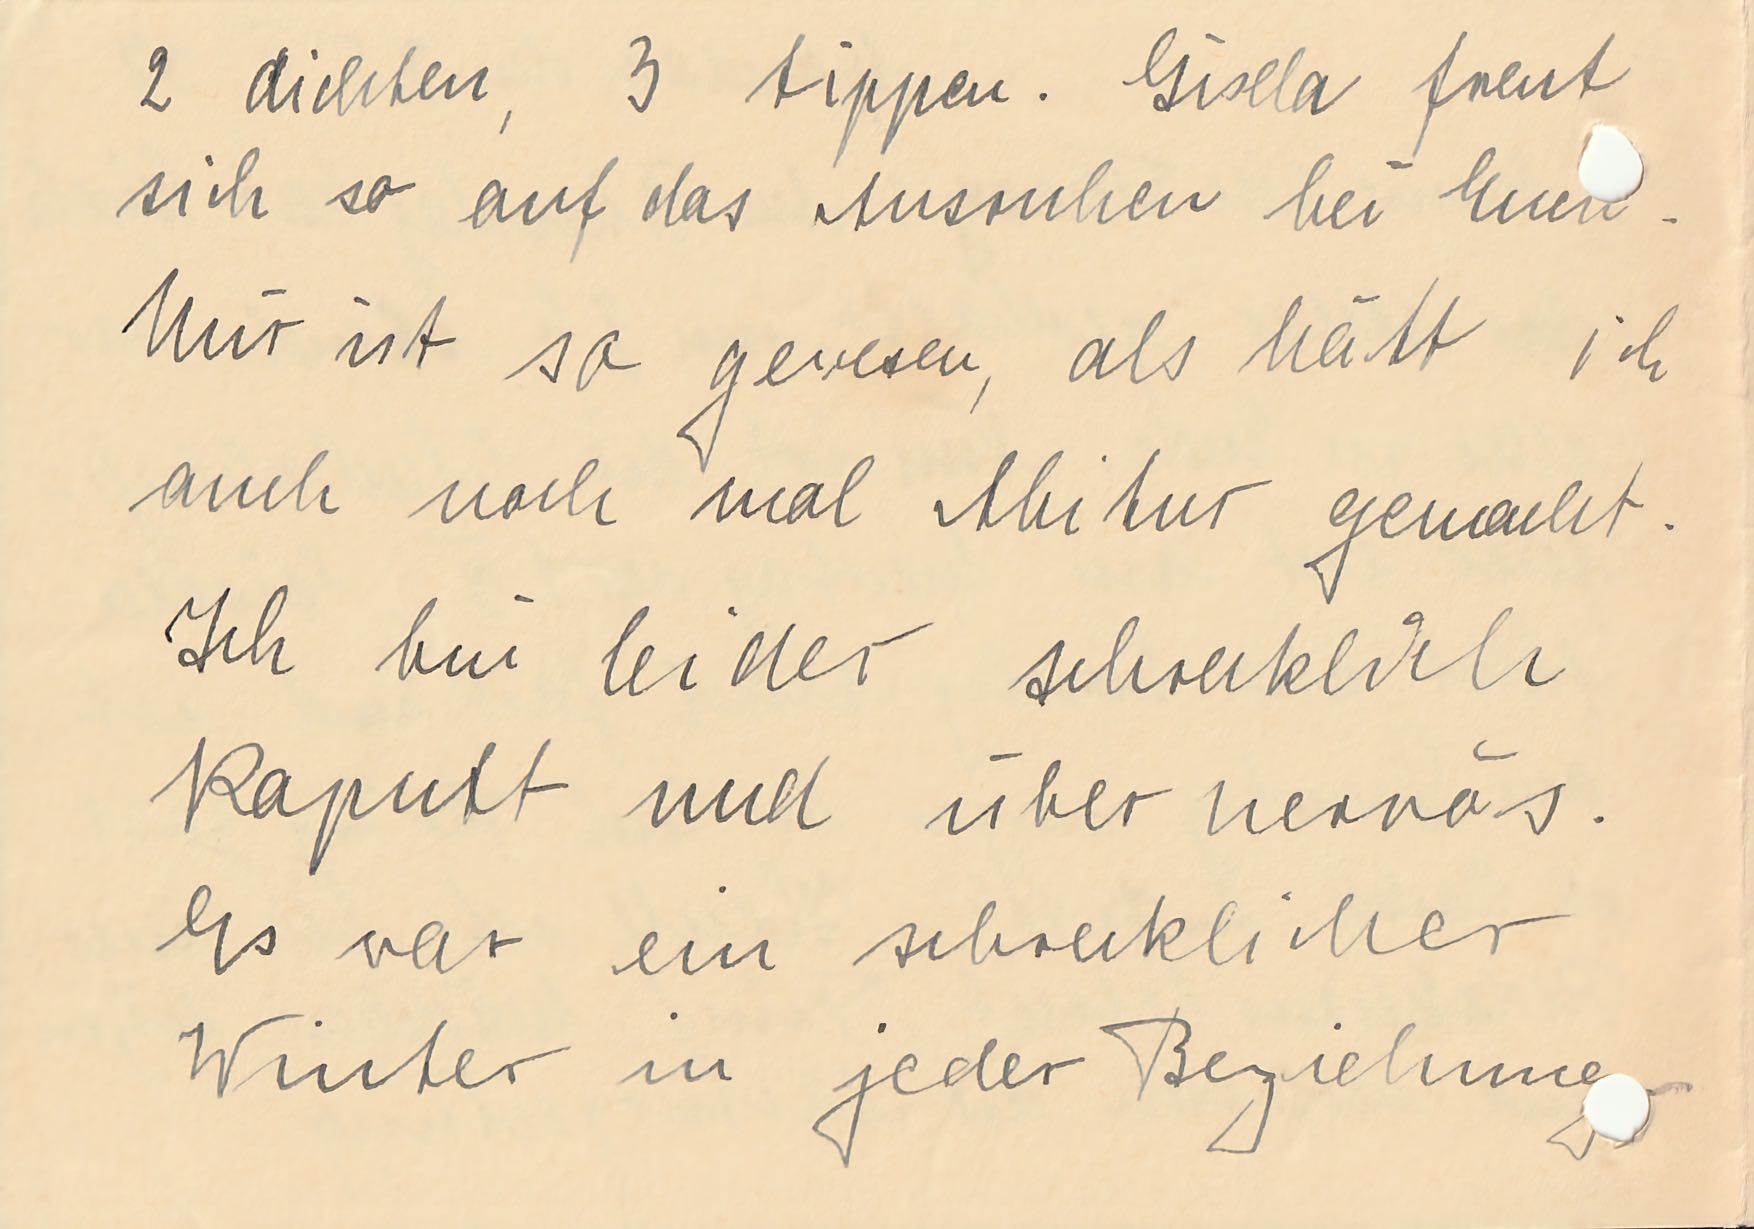 2 dichten, 3 tippen. Gisela freut
sich so auf das Ausruhen bei Euch.
Mir ist so gewesen, als hätt ich
auch noch mal Abitur gemacht.
Ich bin leider schrecklich
kaputt und über nervös.
Es war ein schrecklicher
Winter in jeder Beziehung